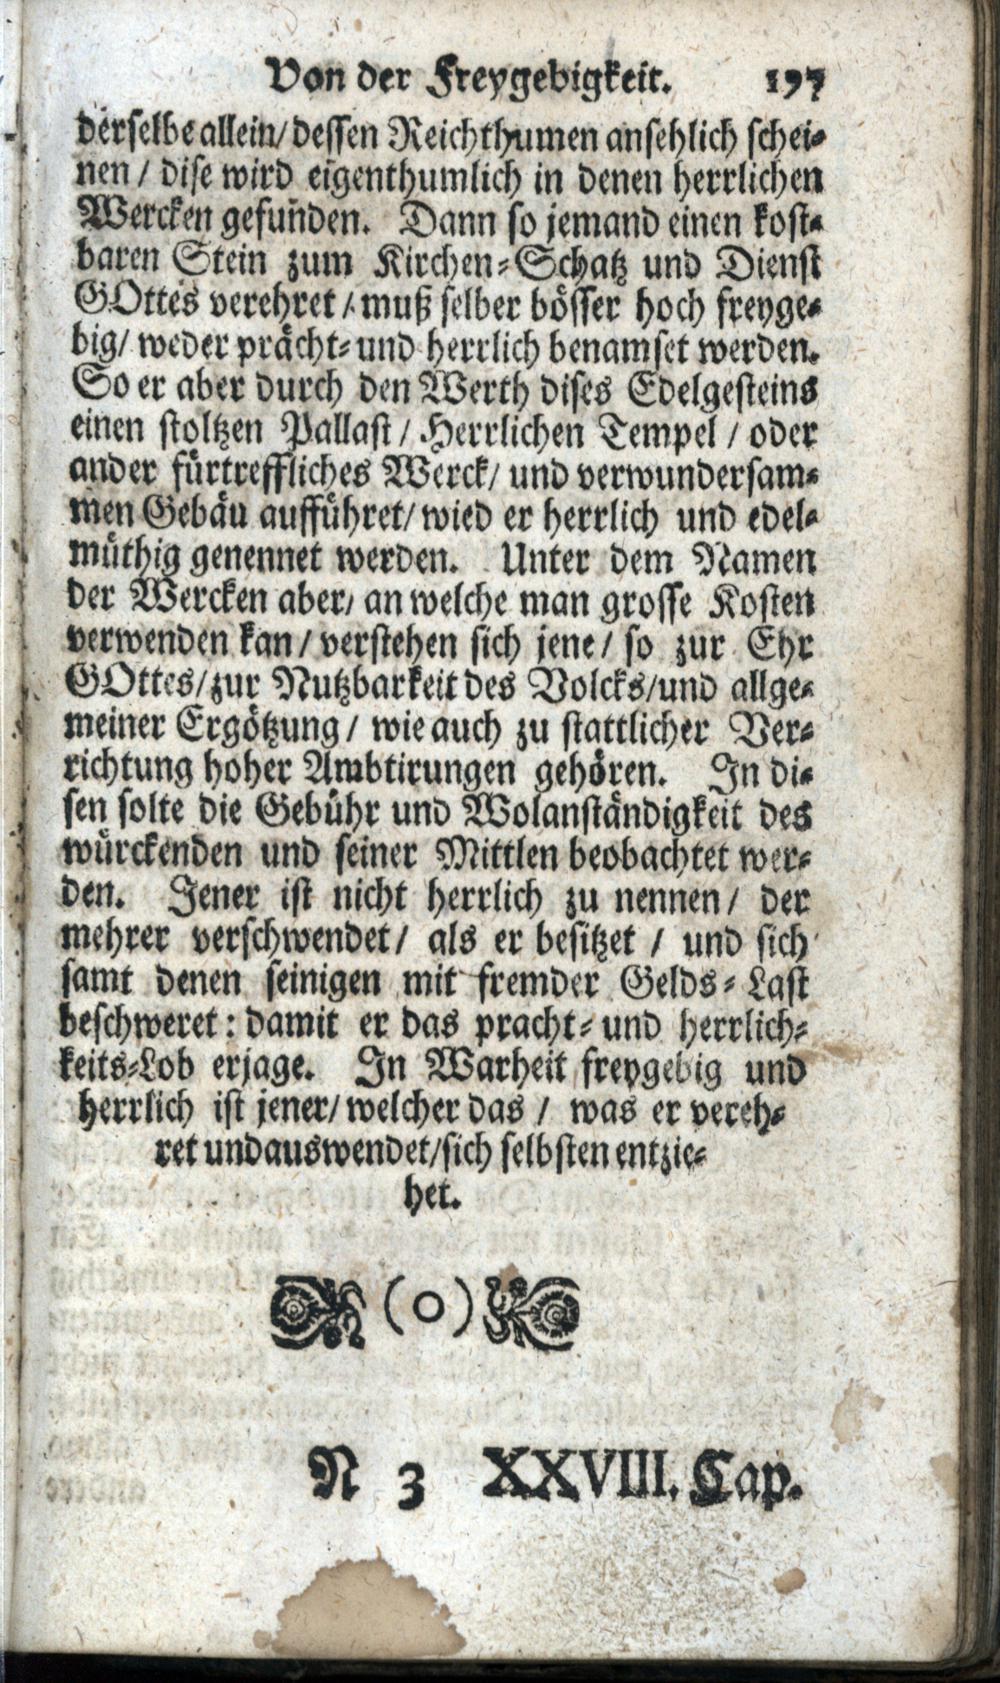 Von der Freygebigkeit. 197
derselbe allein/ dessen Reichthumen ansehlich schei-
nen / dise wird eigenthumlich in denen herrlichen
Wercken gefunden. Dann so jemand einen kost-
baren Stein zum Kirchen-Schatz und Dienst
GOttes verehret / muß selber bösser hoch freyge-
big/ weder prächt- und herrlich benamset werden.
So er aber durch den Werth dises Edelgesteins
einen stoltzen Pallast / Herrlichen Tempel / oder
ander fürtreffliches Werck/ und verwundersam-
men Gebäu aufführet/ wied er herrlich und edel-
müthig genennet werden. Unter dem Namen
der Wercken aber/ an welche man grosse Kosten
verwenden kan / verstehen sich jene / so zur Ehr
GOttes/ zur Nutzbarkeit des Volcks/ und allge-
meiner Ergötzung / wie auch zu stattlicher Ver-
richtung hoher Ambtirungen gehören. In di-
sen solte die Gebühr und Wolanständigkeit des
würckenden und seiner Mittlen beobachtet wer-
den. Jener ist nicht herrlich zu nennen / der
mehrer verschwendet / als er besitzet / und sich
samt denen seinigen mit fremder Gelds-Last
beschweret: damit er das pracht- und herrlich-
keits-Lob erjage. In Warheit freygebig und
herrlich ist jener/ welcher das / was er vereh-
ret und auswendet/ sich selbsten entzie-
het.
(o)
N 3 XXVIII. Cap.